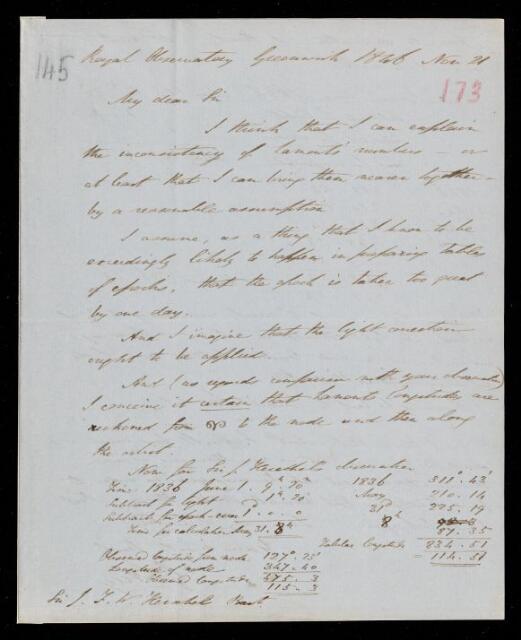 145
Royal Observatory Greenwich 1846 Nov 21
173
My dear Sir
I think that I can explain
the inconsistency of Lamont's numbers — or
at least that I can bring them nearer together —
by a reasonable assumption
I assume, as a thing that I know to be
exceedingly likely to happen in preparing tables
of epochs, that the epoch is taken too great
by one day.
And I imagine that the light correction
ought to be applied.
And (as regards comparison with your observation)
I conceive it certain that Lamont's longitudes are
reckoned from ♈ to the node and then along
the orbit.
Now for Sir J. Herschel's observation
Time 1836 June 1. 9h 20m
Subtract for light 1h. 20
Subtract for epoch error 1. 0. 0
Time for calculation May 31. 8h
1836 311°. 43'
May 210. 14
31d 225. 19
8h
87. 35
Tabular Longitude 834. 51
= 114. 51
Observed longitude from node 127°. 23'
Longitude of node 347. 40
Observed longitude 475. 3
115. 3
Sir J. F. W. Herschel Bart.